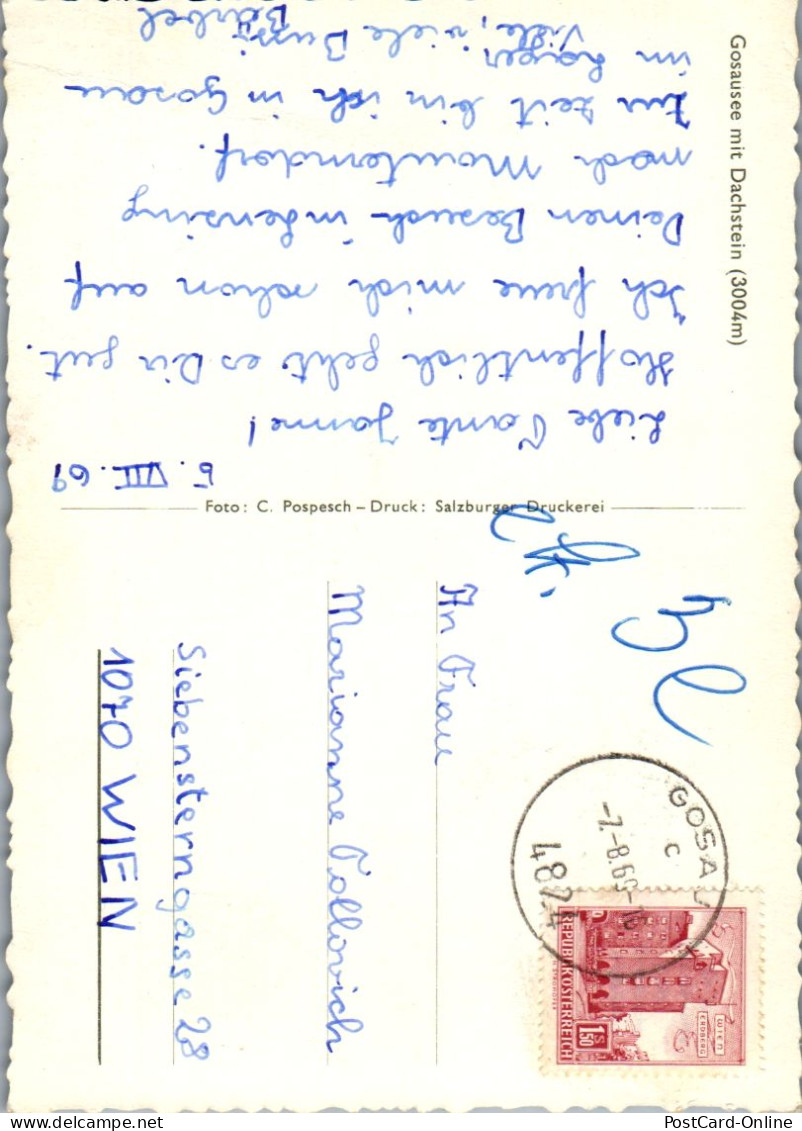 5. VIII. 69
Liebe Tante Janne!
Hoffentlich geht es Dir gut.
Ich freue mich schon auf
Deinen Besuch in Lenzing
nach Mauterndorf.
Zur Zeit bin ich in Gosau
im Lager.
Viele, viele Bussi
Bärbel
Gosausee mit Dachstein (3004m)
Foto: C. Pospesch – Druck: Salzburger Druckerei
An Frau
Marianne Tollovich
Siebensterngasse 28
1070 WIEN
GOSAU
c
-7.-8.69-10
4824
REPUBLIK ÖSTERREICH
1.50 S
WIEN
ERDBERG
PostCard-Online